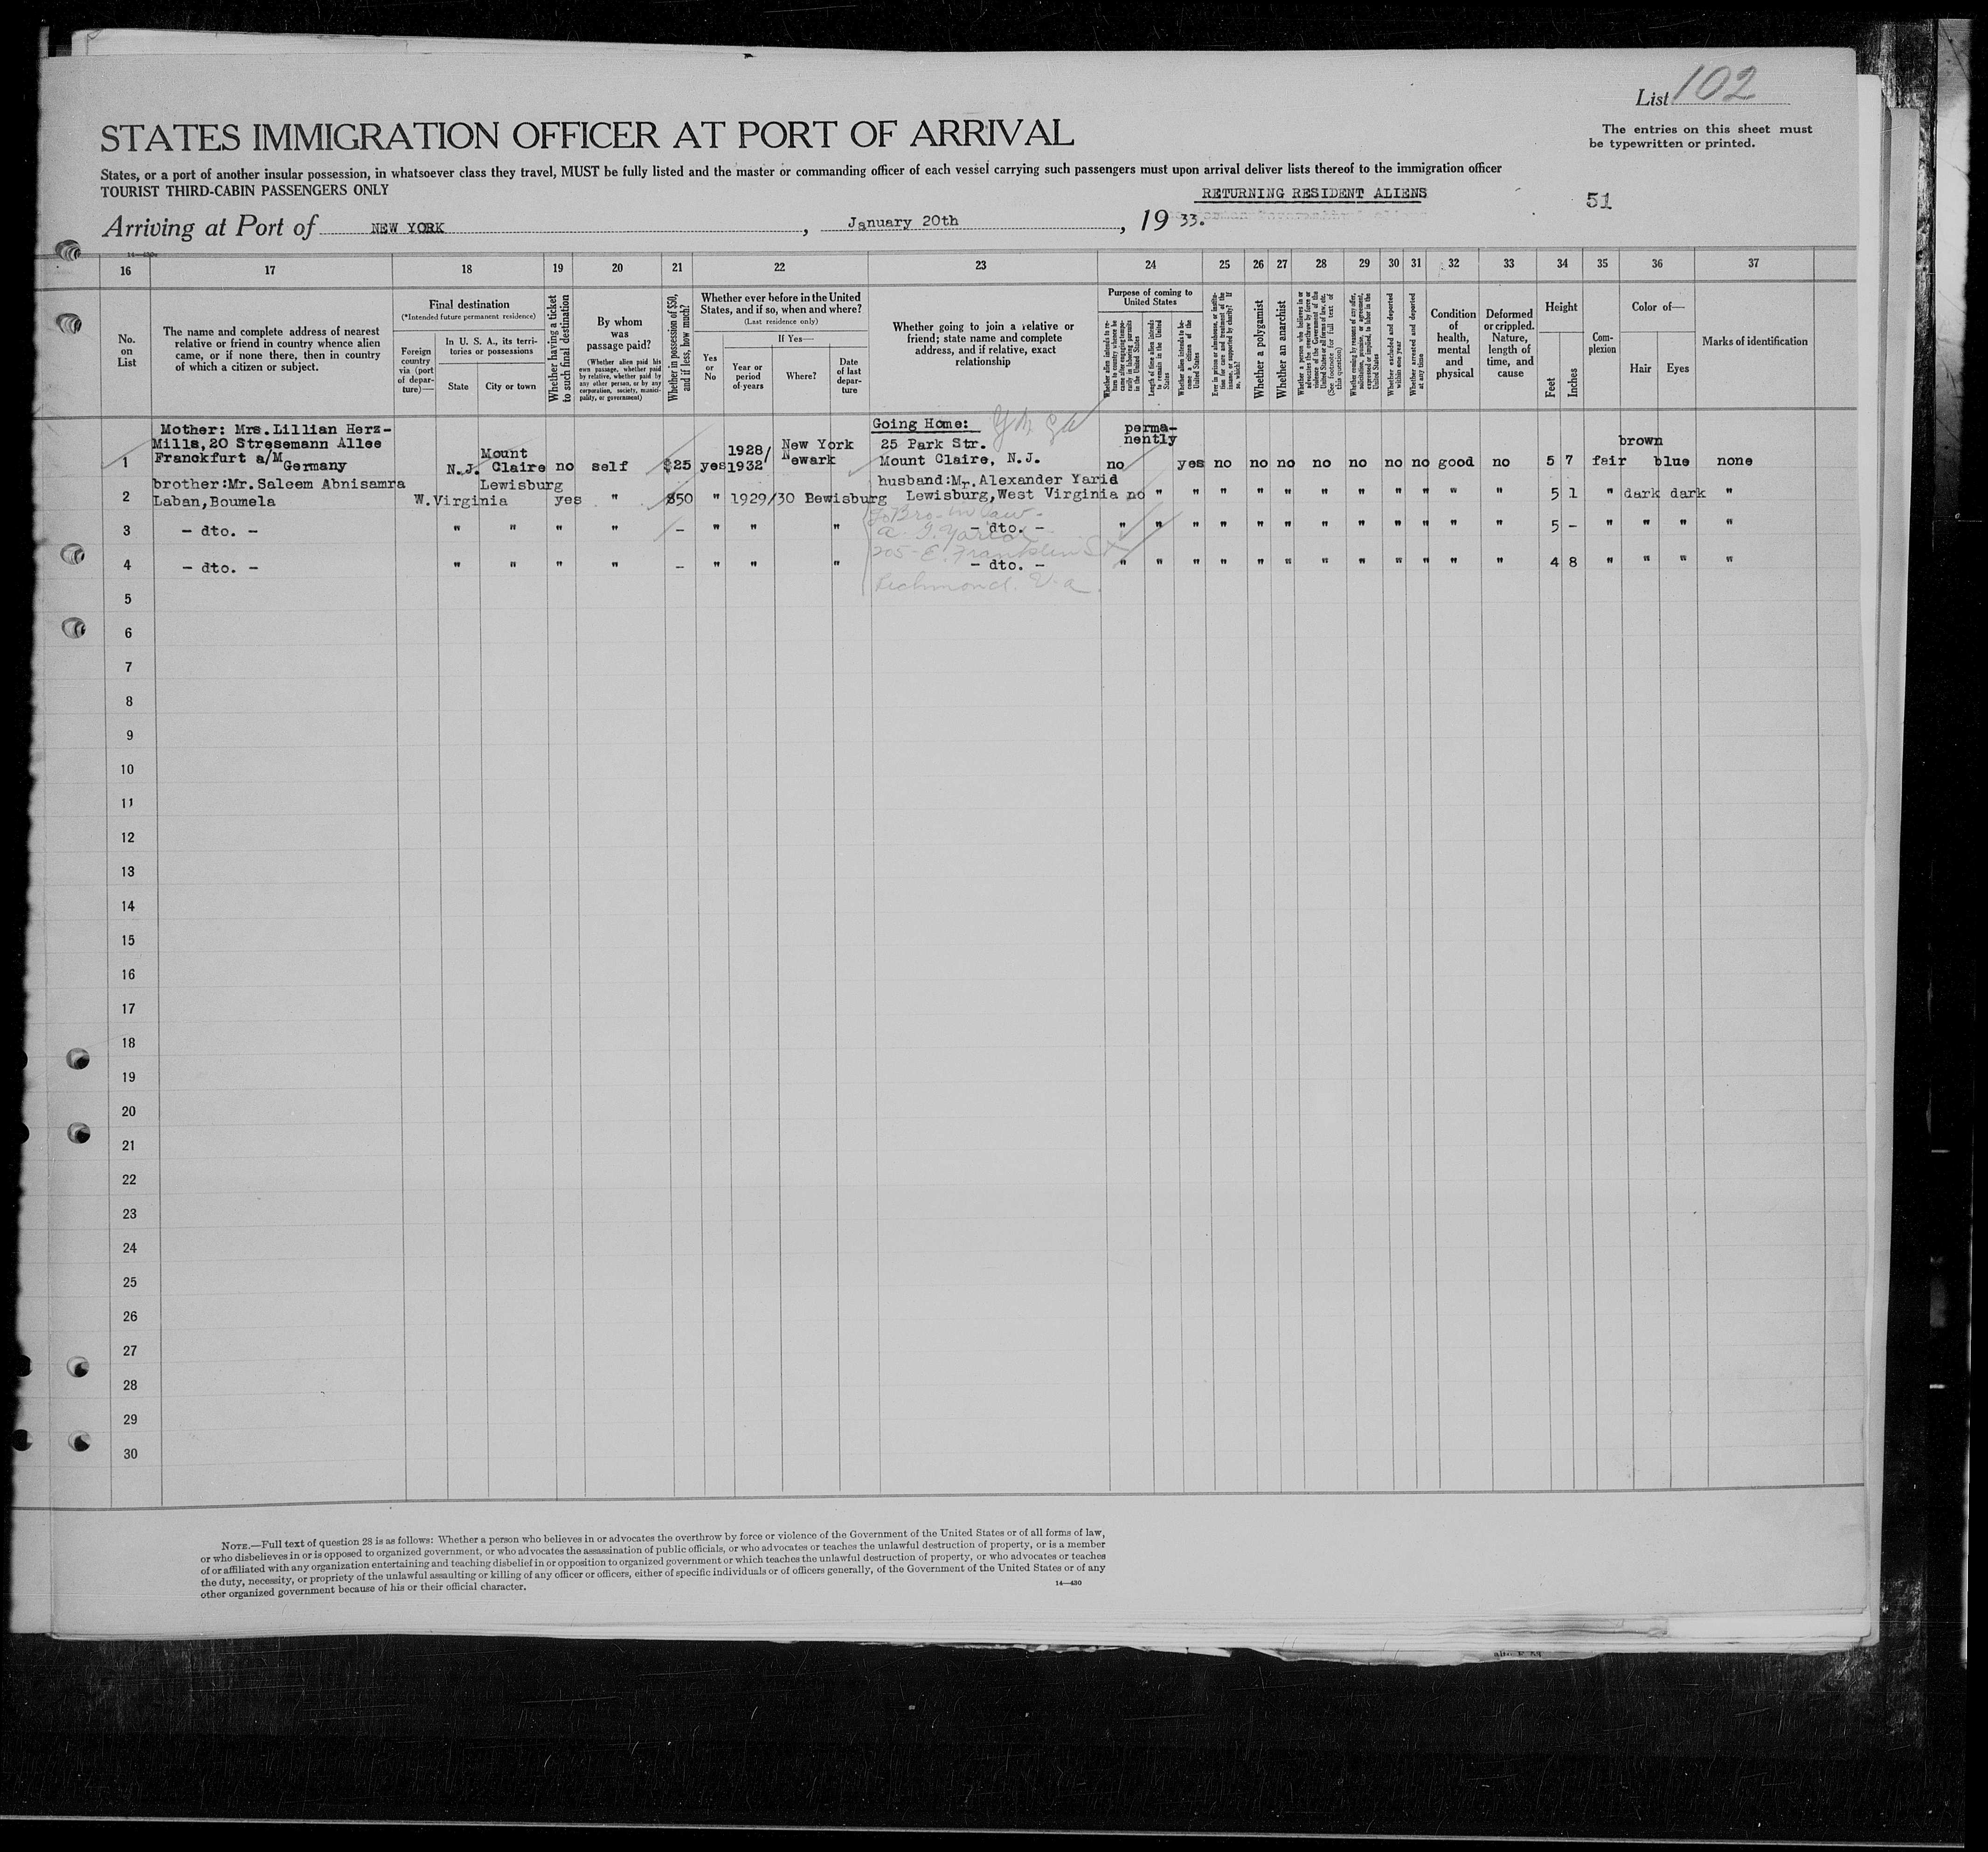 List 102
STATES IMMIGRATION OFFICER AT PORT OF ARRIVAL
The entries on this sheet must
be typewritten or printed.
States, or a port of another insular possession, in whatsoever class they travel, MUST be fully listed and the master or commanding officer of each vessel carrying such passengers must upon arrival deliver lists thereof to the immigration officer
TOURIST THIRD-CABIN PASSENGERS ONLY
RETURNING RESIDENT ALIENS
51
Arriving at Port of NEW YORK, January 20th, 19 33.
14—430
16 17 18 19 20 21 22 23 24 25 26 27 28 29 30 31 32 33 34 35 36 37
No. on List
The name and complete address of nearest relative or friend in country whence alien came, or if none there, then in country of which a citizen or subject.
Final destination
(*Intended future permanent residence)
Foreign country via (port of departure)—
In U. S. A., its territories or possessions
State
City or town
Whether having a ticket to such final destination
By whom was passage paid?
(Whether alien paid his own passage, whether paid by relative, whether paid by any other person, or by any corporation, society, municipality, or government)
Whether in possession of $50, and if less, how much?
Whether ever before in the United States, and if so, when and where?
(Last residence only)
Yes or No
If Yes—
Year or period of years
Where?
Date of last departure
Whether going to join a relative or friend; state name and complete address, and if relative, exact relationship
Purpose of coming to United States
Whether alien intends to return to country whence he came after engaging temporarily in laboring pursuits in the United States
Length of time alien intends to remain in the United States
Whether alien intends to become a citizen of the United States
Ever in prison or almshouse, or institution for care and treatment of the insane, or supported by charity? If so, which?
Whether a polygamist
Whether an anarchist
Whether a person who believes in or advocates the overthrow by force or violence of the Government of the United States or all forms of law, etc. (See footnote for full text of this question)
Whether coming by reasons of any offer, solicitation, promise, or agreement, expressed or implied, to labor in the United States
Whether excluded and deported within one year
Whether arrested and deported at any time
Condition of health, mental and physical
Deformed or crippled. Nature, length of time, and cause
Height
Feet
Inches
Complexion
Color of—
Hair
Eyes
Marks of identification
1 Mother: Mrs. Lillian Herz-
Mills, 20 Stresemann Allee
Franckfurt a/M Germany N.J. Mount Claire no self $25 yes 1928/1932 New York Newark Going Home: 25 Park Str. Mount Claire, N.J. no permanently yes no no no no no no no good no 5 7 fair brown blue none
2 brother:Mr. Saleem Abnisamra
Laban, Boumela W.Virginia Lewisburg yes " $50 " 1929/30 Bewisburg husband:Mr. Alexander Yarid Lewisburg, West Virginia no " " " " " " " " " " " 5 1 " dark dark "
3 - dto. - " " " " - " " " - dto. - " " " " " " " " " " " " 5 - " " " "
To Bro-in law-
205 - E. Franklin St
4 - dto. - " " " " - " " " - dto. - " " " " " " " " " " " " 4 8 " " " "
Richmond. Va.
5
6
7
8
9
10
11
12
13
14
15
16
17
18
19
20
21
22
23
24
25
26
27
28
29
30
NOTE.—Full text of question 28 is as follows: Whether a person who believes in or advocates the overthrow by force or violence of the Government of the United States or of all forms of law,
or who disbelieves in or is opposed to organized government, or who advocates the assassination of public officials, or who advocates or teaches the unlawful destruction of property, or is a member
of or affiliated with any organization entertaining and teaching disbelief in or opposition to organized government or which teaches the unlawful destruction of property, or who advocates or teaches
the duty, necessity, or propriety of the unlawful assaulting or killing of any officer or officers, either of specific individuals or of officers generally, of the Government of the United States or of any
other organized government because of his or their official character.
14—430